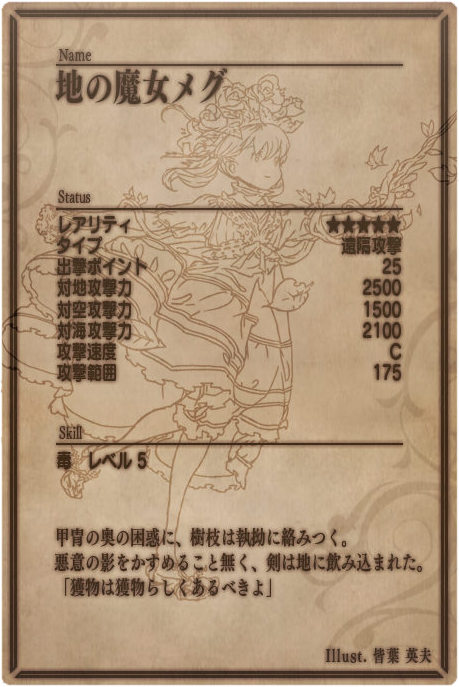 Name
地の魔女メグ
Status
レアリティ ★★★★★
タイプ 遠隔攻撃
出撃ポイント 25
対地攻撃力 2500
対空攻撃力 1500
対海攻撃力 2100
攻撃速度 C
攻撃範囲 175
Skill
毒 レベル 5
甲冑の奥の困惑に、樹枝は執拗に絡みつく。
悪意の影をかすめること無く、剣は地に飲み込まれた。
「獲物は獲物らしくあるべきよ」
Illust. 皆葉 英夫